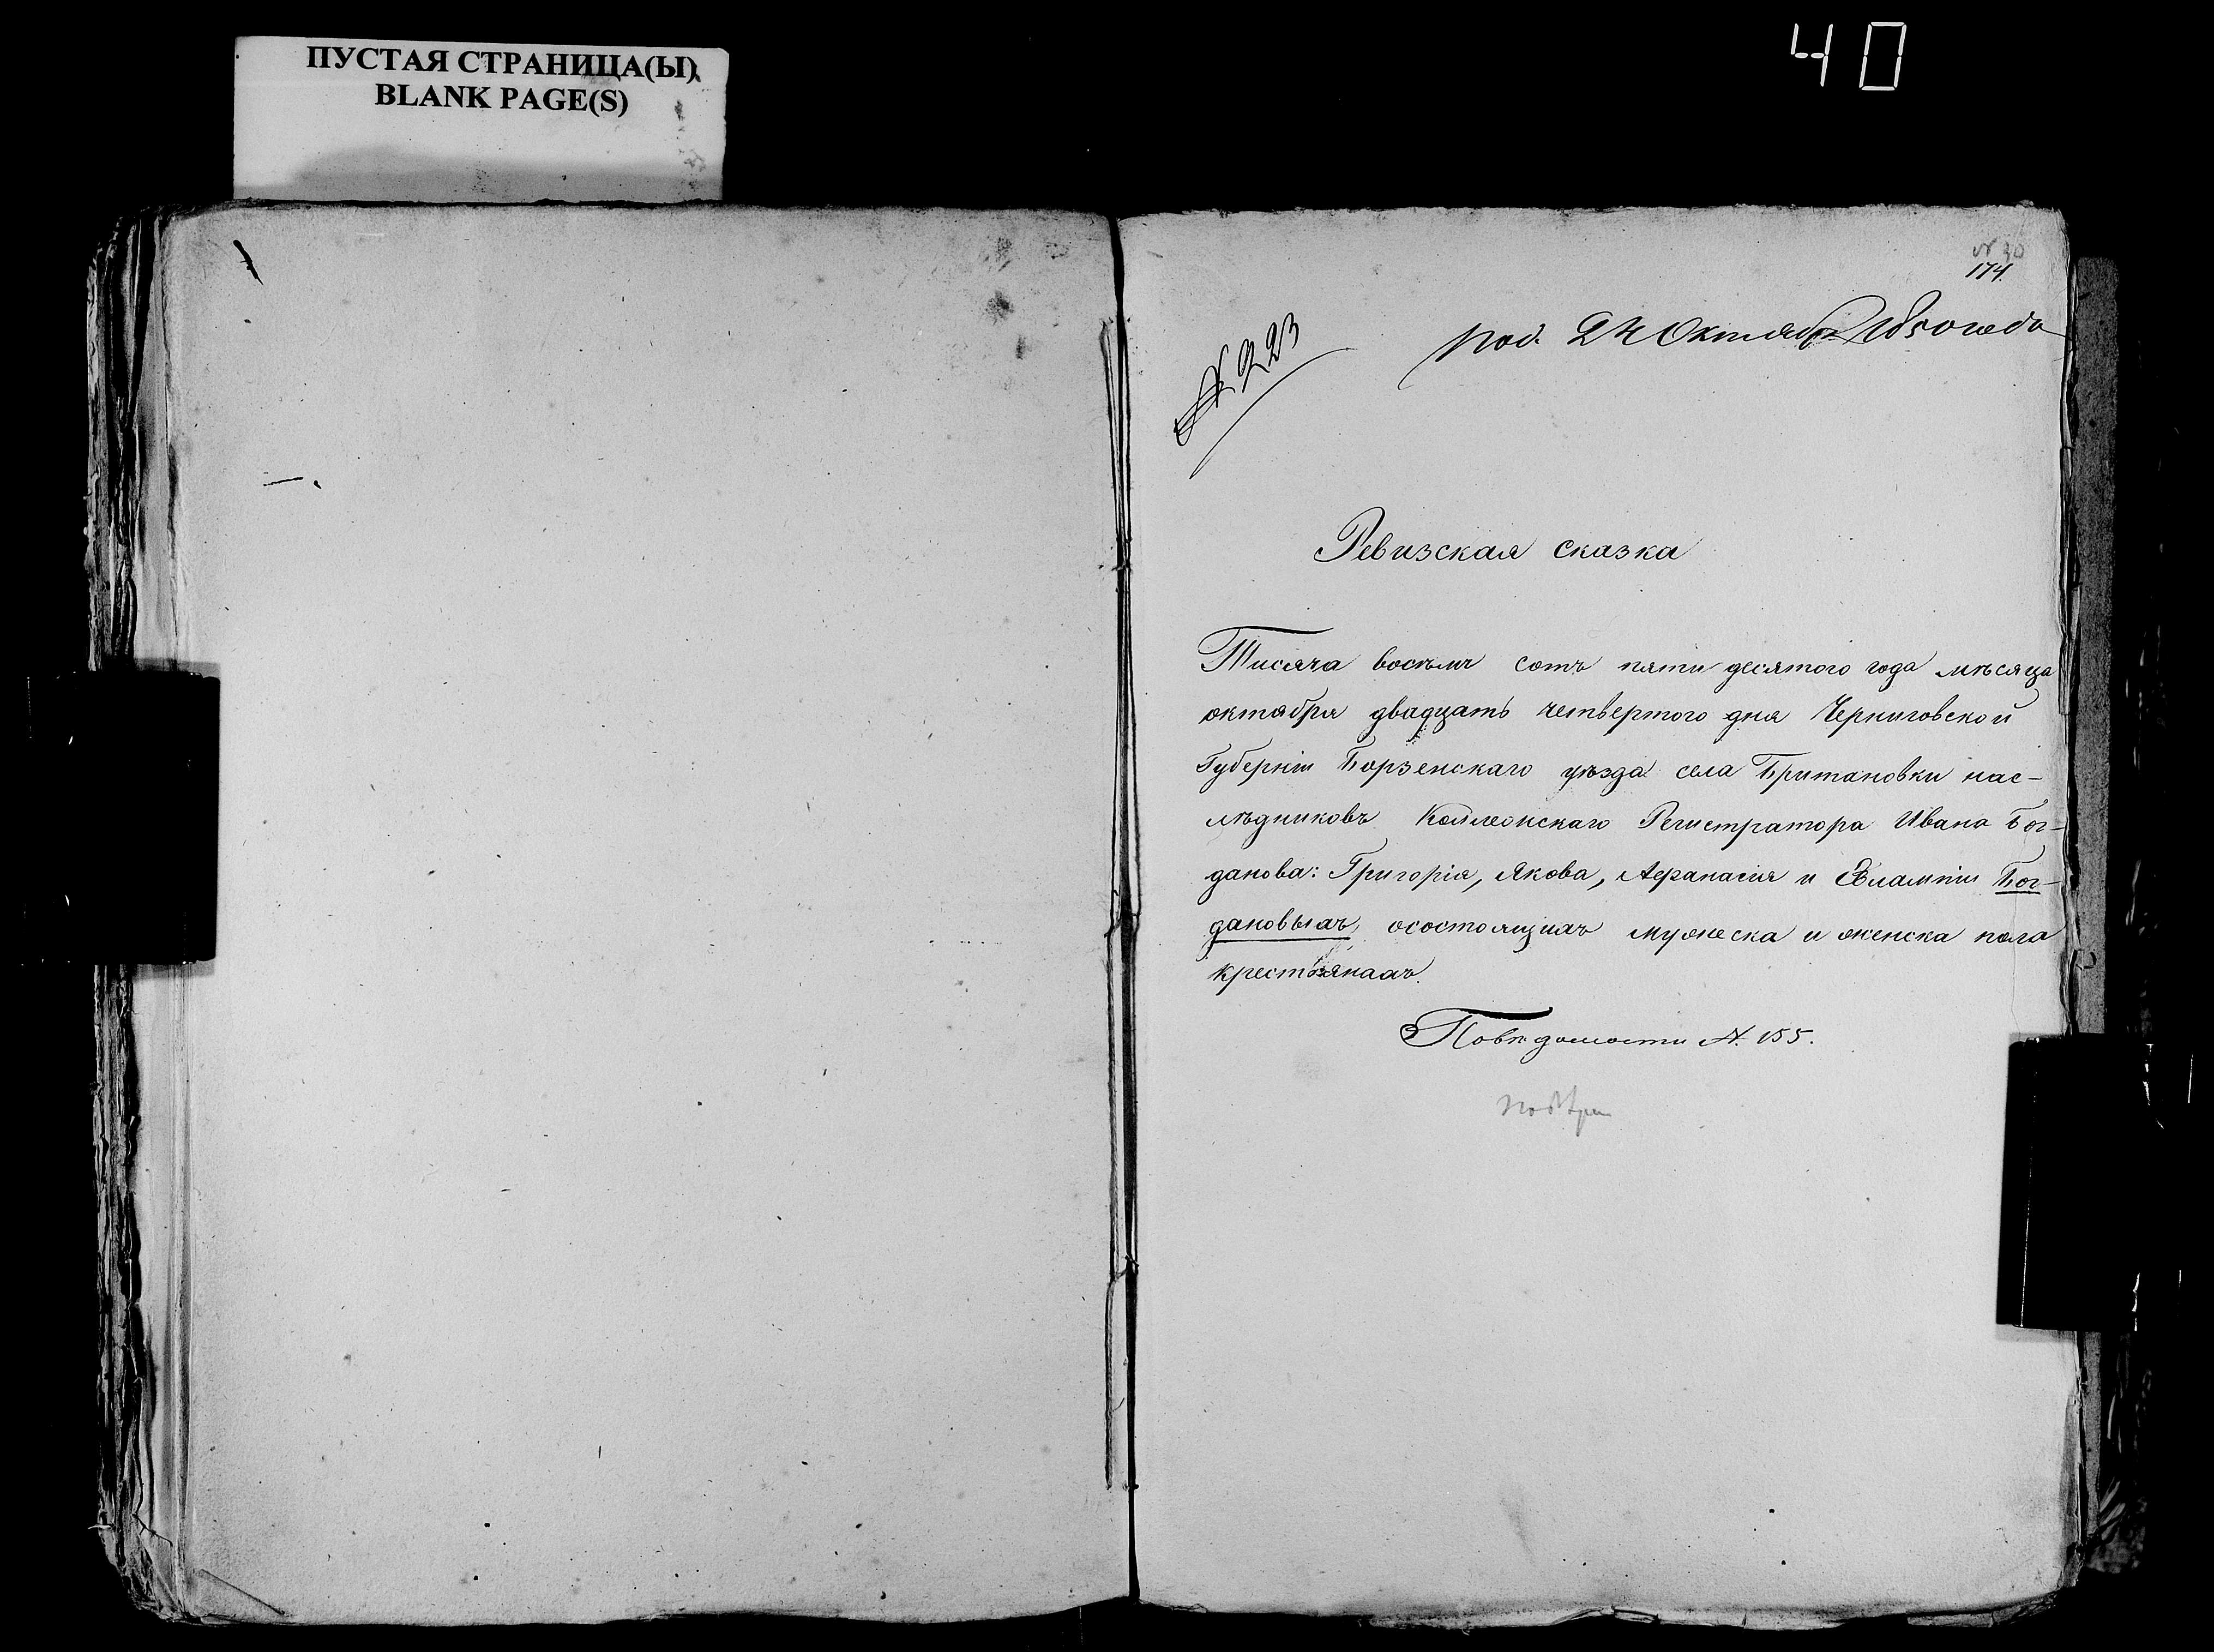 ПУСТАЯ СТРАНИЦА(Ы)
BLANK PAGE(S)
40
174.
№ 223
Под. 24 Октября 1850 года
Ревизская сказка
Тисяча восемь сотъ пяти десятого года мѣсяца
октября двадцать четвертого дня Черниговской
Губерніи Борзенскаго уѣзда села Британовки нас-
лѣдниковъ Коллежскаго Регистратора Ивана Бог-
данова: Григорія, Якова, Афанасия и Евлампіи Бог-
дановыхъ, осостоящихъ мужеска и женска пола
крестьянахъ.
Повѣдомости №. 155.